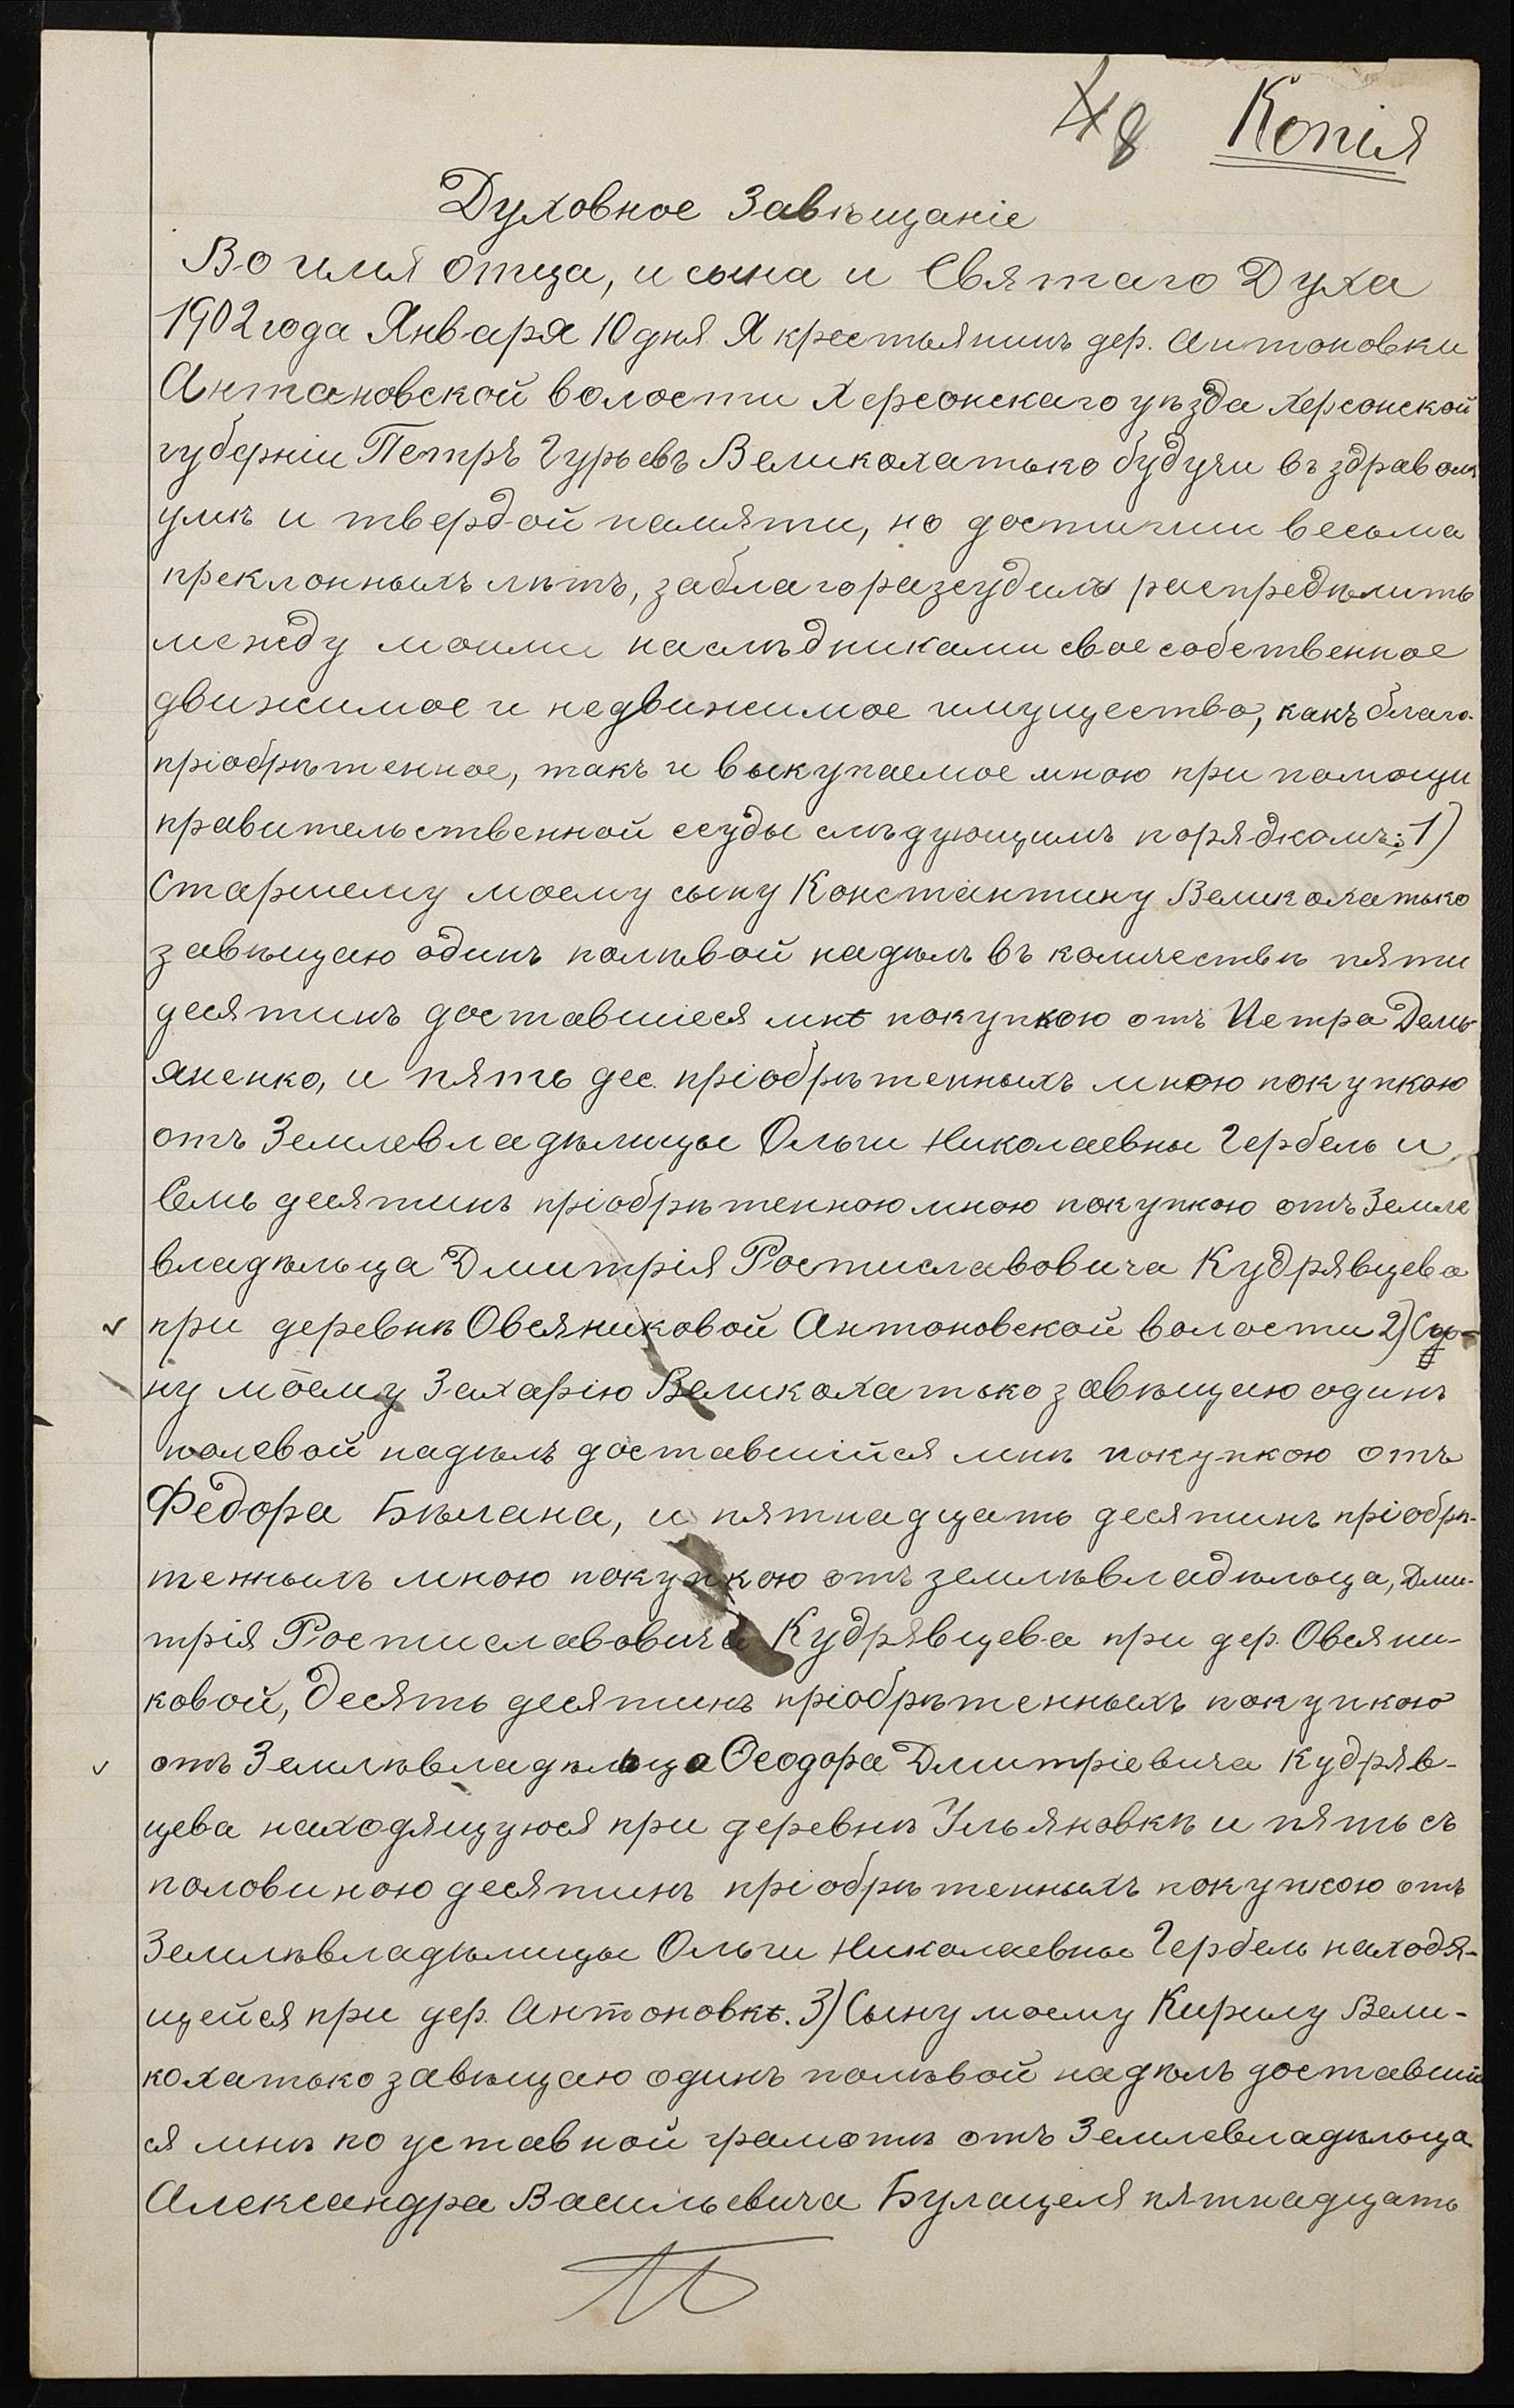 8 Копія
Духовное Завѣщаніе
Во имя Отца, и сына и Святаго Духа
1902 года Января 10 дня Я крестьянинъ дер. Антоновки
Антоновской волости Херсонскаго уѣзда Херсонской
губерніи Петръ Гурьевъ Великохатько будучи въ здравомъ
умѣ и твердой памяти, но достигши весьма
преклонныхъ лѣтъ, заблагоразсудилъ распредѣлить
между моими наслѣдниками свое собственное
движимое и недвижимое имущество, какъ благо-
пріобрѣтенное, такъ и выкупаемое мною при помощи
правительственной ссуды слѣдующимъ порядкомъ: 1)
Старшему моему сыну Константину Великохатько
завѣщаю одинъ полѣвой надѣлъ въ количествѣ пяти
десятинъ доставшіеся мнѣ покупкою отъ Петра Демь
яненко, и пять дес. пріобрѣтенныхъ мною покупкою
отъ Землевладѣлицы Ольги Николаевны Гербель и
Семь десятинъ пріобрѣтенною мною покупкою отъ Земле
владѣльца Дмитрія Ростиславовича Кудрявцева
при деревнѣ Овсяниковой Антоновской волости 2) Сы-
ну моему Захарію Великохатько завѣщаю одинъ
полевой надѣлъ доставшійся мнѣ покупкою отъ
Федора Бѣлана, и пятнадцать десятинъ пріобрѣ-
тенныхъ мною покупкою отъ землѣвладѣльца, Дми-
трія Ростиславовича Кудрявцева при дер. Овсяни-
ковой, десять десятинъ пріобрѣтенныхъ покупкою
отъ Землѣвладѣльца Ѳеодора Дмитріевича Кудряв-
цева находящуюся при деревнѣ Ульяновкѣ и пять съ
половиною десятинъ пріобрѣтенныхъ покупкою отъ
Землѣвладѣлицы Ольги Николаевны Гербель находя-
щейся при дер. Антоновкѣ. 3) Сыну моему Кирилу Вели-
кохатько завѣщаю одинъ полѣвой надѣлъ доставшій
ся мнѣ по уставной грамотѣ отъ Землевладѣльца
Александра Васильевича Булацеля пятнадцать